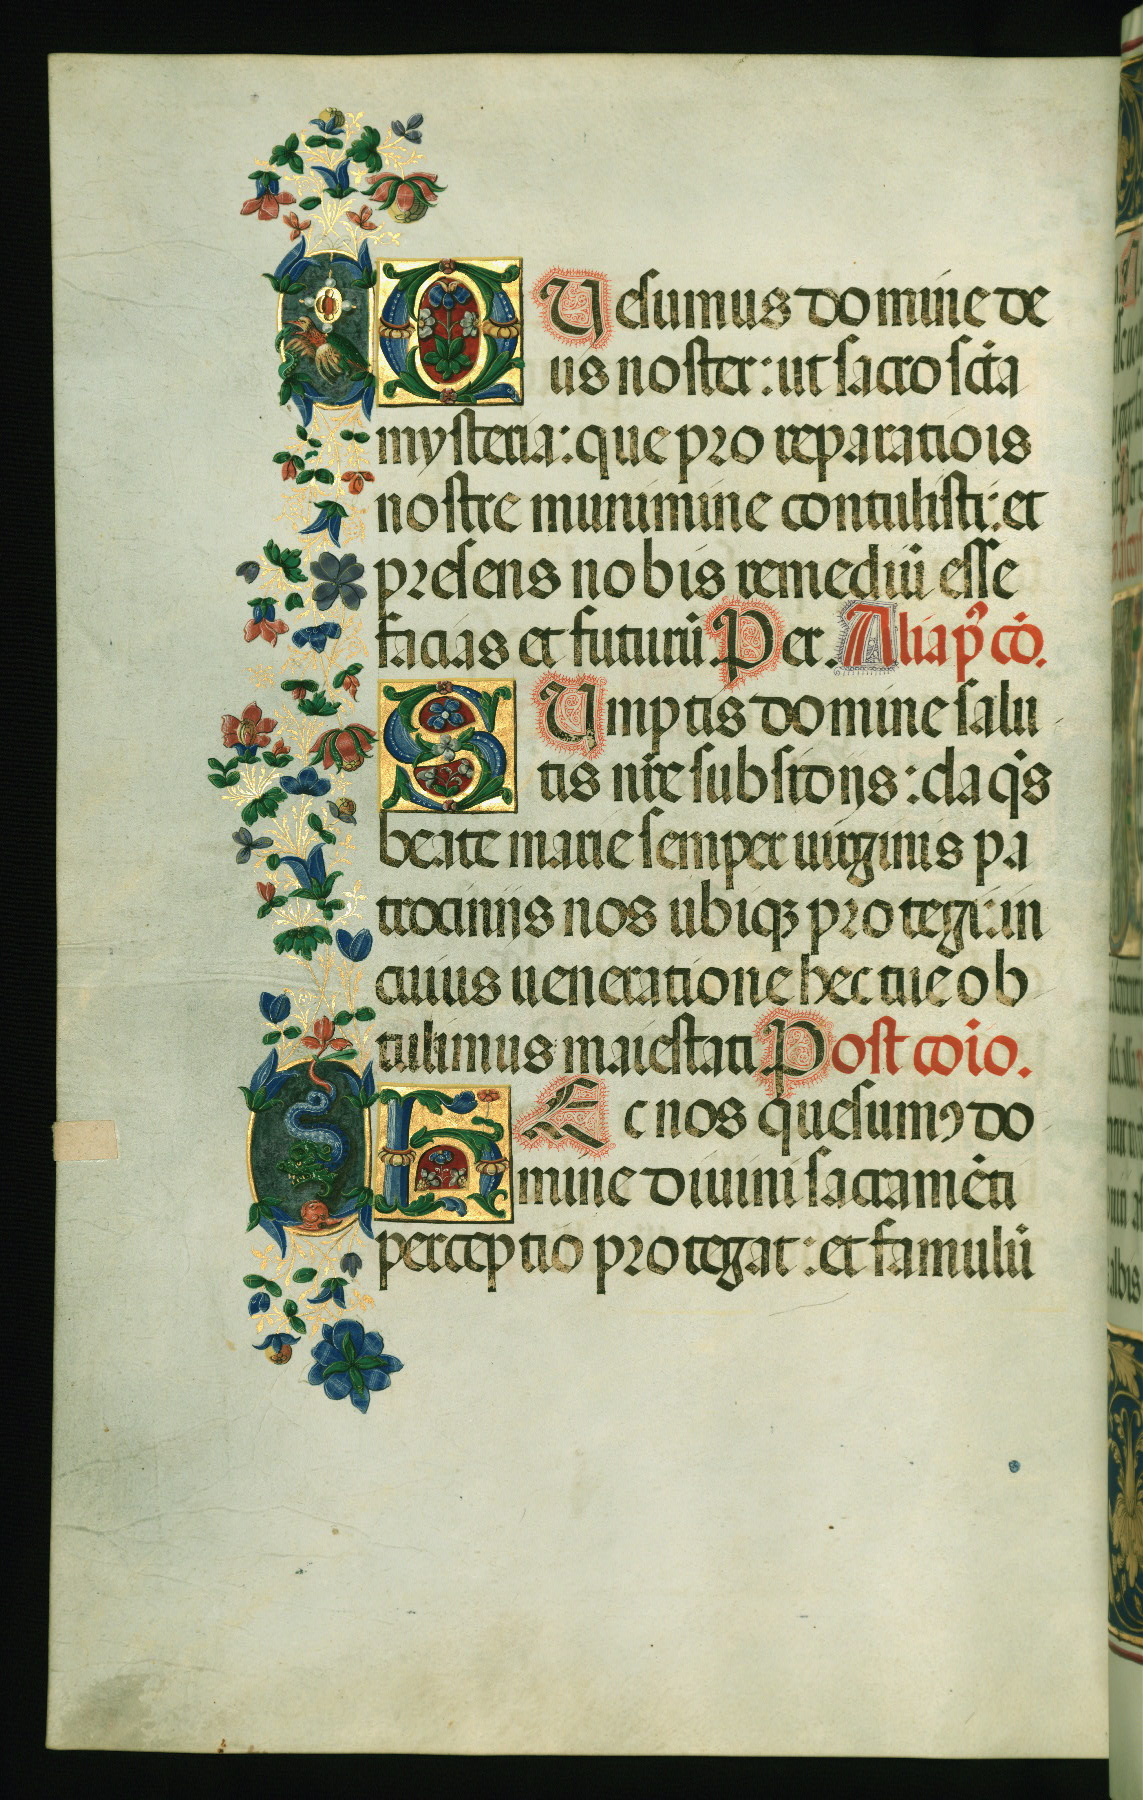 QUesumus domine de
us noster: ut sacrosc̄ta
mysteria: que pro reparatiōis
nostre munimine contulisti: et
presens nobis remediū esse
facias et futurū. Per. Alia p̄ cō.
SUmptis domine salu
tis nr̄e subsidijs: da q̄s
beate marie semper uirginis pa
trocinijs nos ubiqꝫ protegi: in
cuius ueneratione hec tue ob
tulimus maiestati. Post cōio.
HEc nos quesumꝰ do
mine diuini sacramēti
perceptio protegat: et famulū